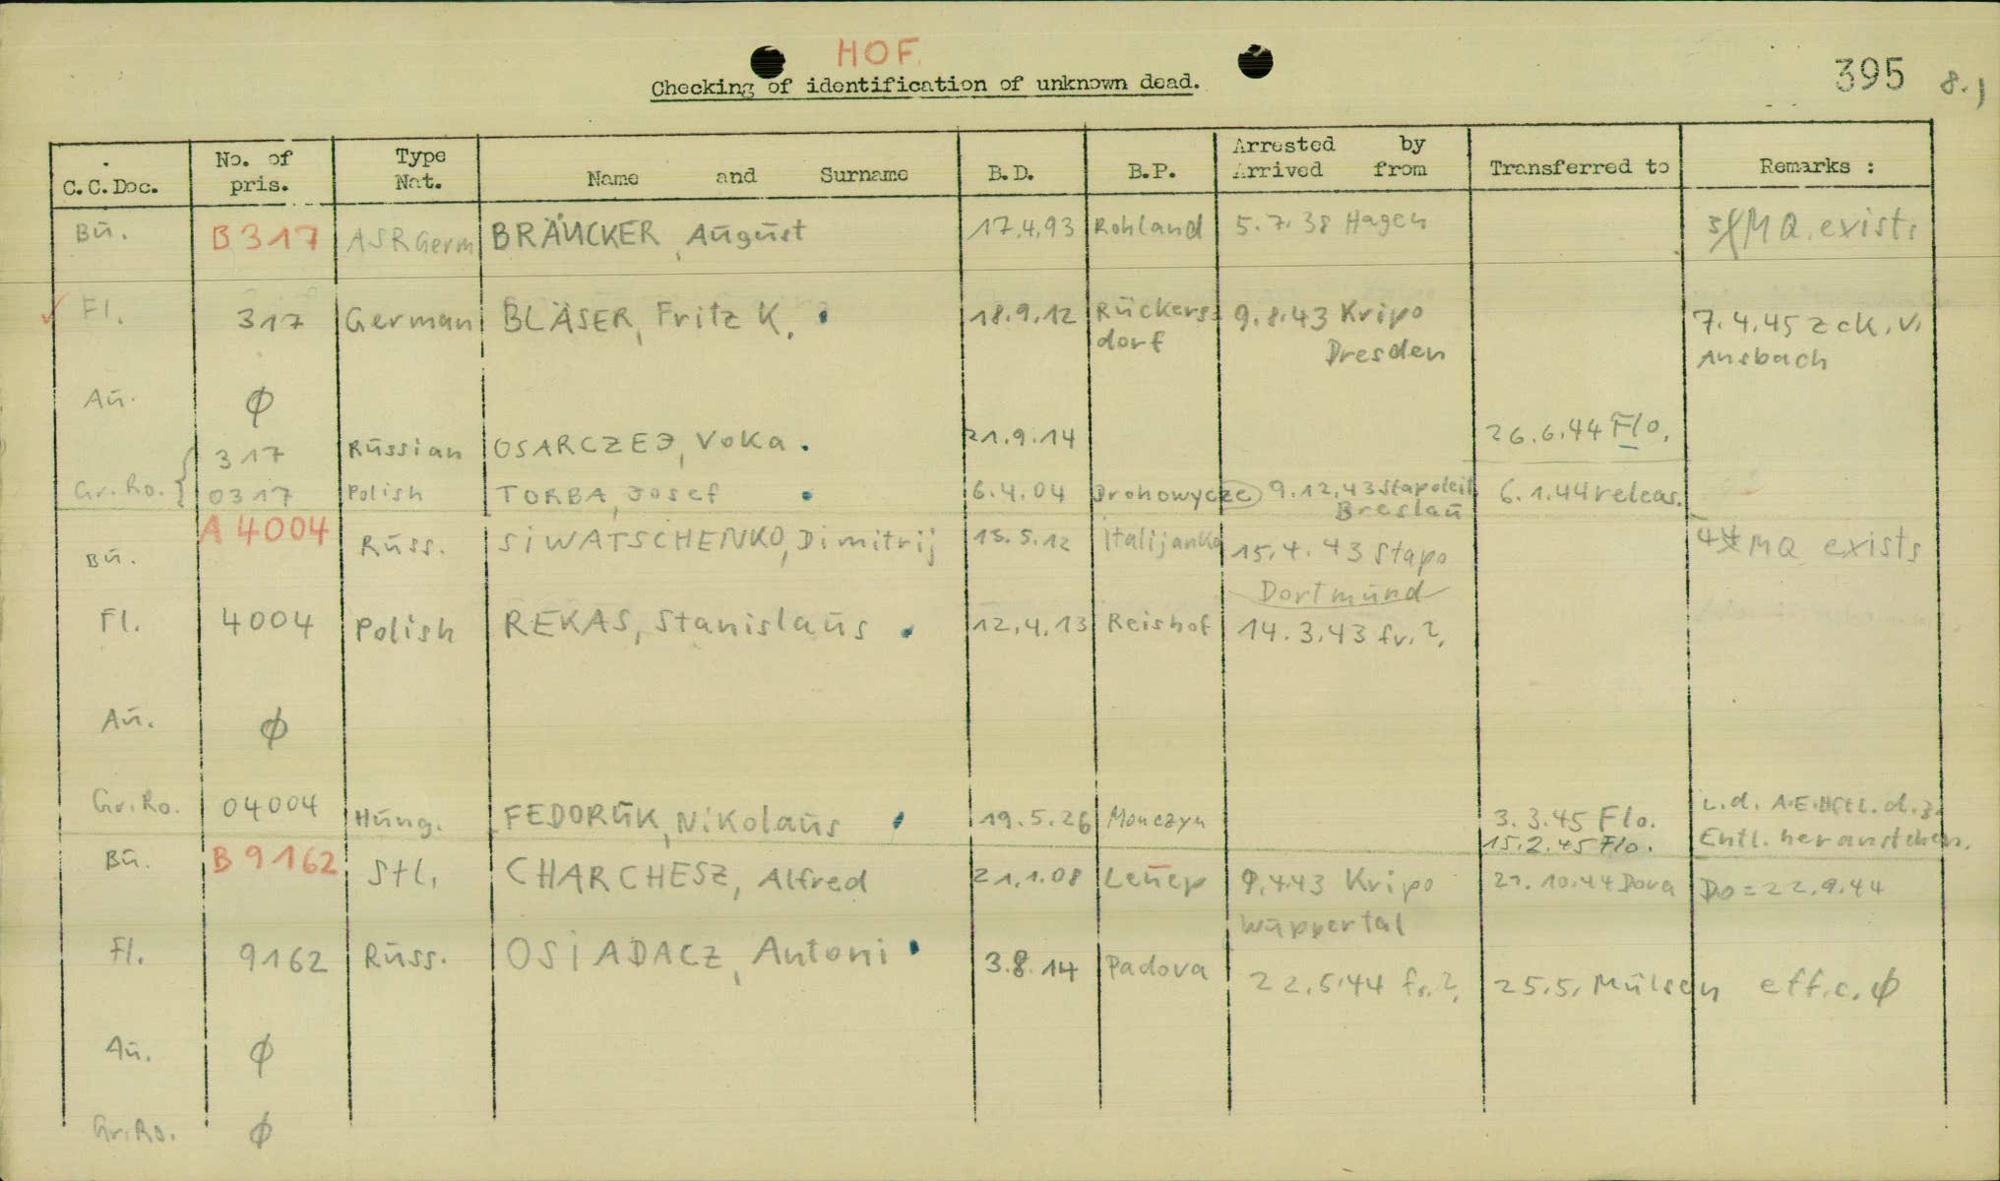 HOF.
Checking of identification of unknown dead.
395 8.)
C.C.Doc. No. of pris. Type Nat. Name and Surname B.D. B.P. Arrested by Arrived from Transferred to Remarks :
Bū. B 317 ASR Germ BRÄUCKER, Aūgūst 17.4.93 Rohland 5.7.38 Hagen MQ. exists
Fl. 317 German BLÄSER, Fritz K. 18.9.12 Rückers= 9.8.43 Kripo 7.4.45 zck. v.
dorf Dresden Ansbach
Aū. φ
317 Rūssian OSARCZEJ, Voka. 21.9.14 26.6.44 Flo.
Gr. Ro. { 0317 Polish TORBA, Josef 6.4.04 Drohowycze 9.12.43 Stapoleit 6.1.44 releas.
Breslaū
Bū. A 4004 Rūss. SIWATSCHENKO, Dimitrij 15.4.43 Stapo MQ exists
Dortmūnd
Fl. 4004 Polish REKAS, Stanislaūs 12.4.13 Reishof 14.3.43 fr.?.
Aū. φ
Gr. Ro. 04004 Hūng. FEDORŪK, Nikolaūs 19.5.26 Monczyn 3.3.45 Flo.
15.2.45 Flo. Entl.
Bū. B 9162 Stl. CHARCHESZ, Alfred 21.1.08 Leūep 9.4.43 Kripo 27.10.44 Dora Do = 22.9.44
Wūppertal
Fl. 9162 Rūss. OSIADACZ, Antoni 3.8.14 Padova 22.5.44 fr.?. 25.5. Mūlsen eff.c. φ
Aū. φ
Gr. Ro. φ